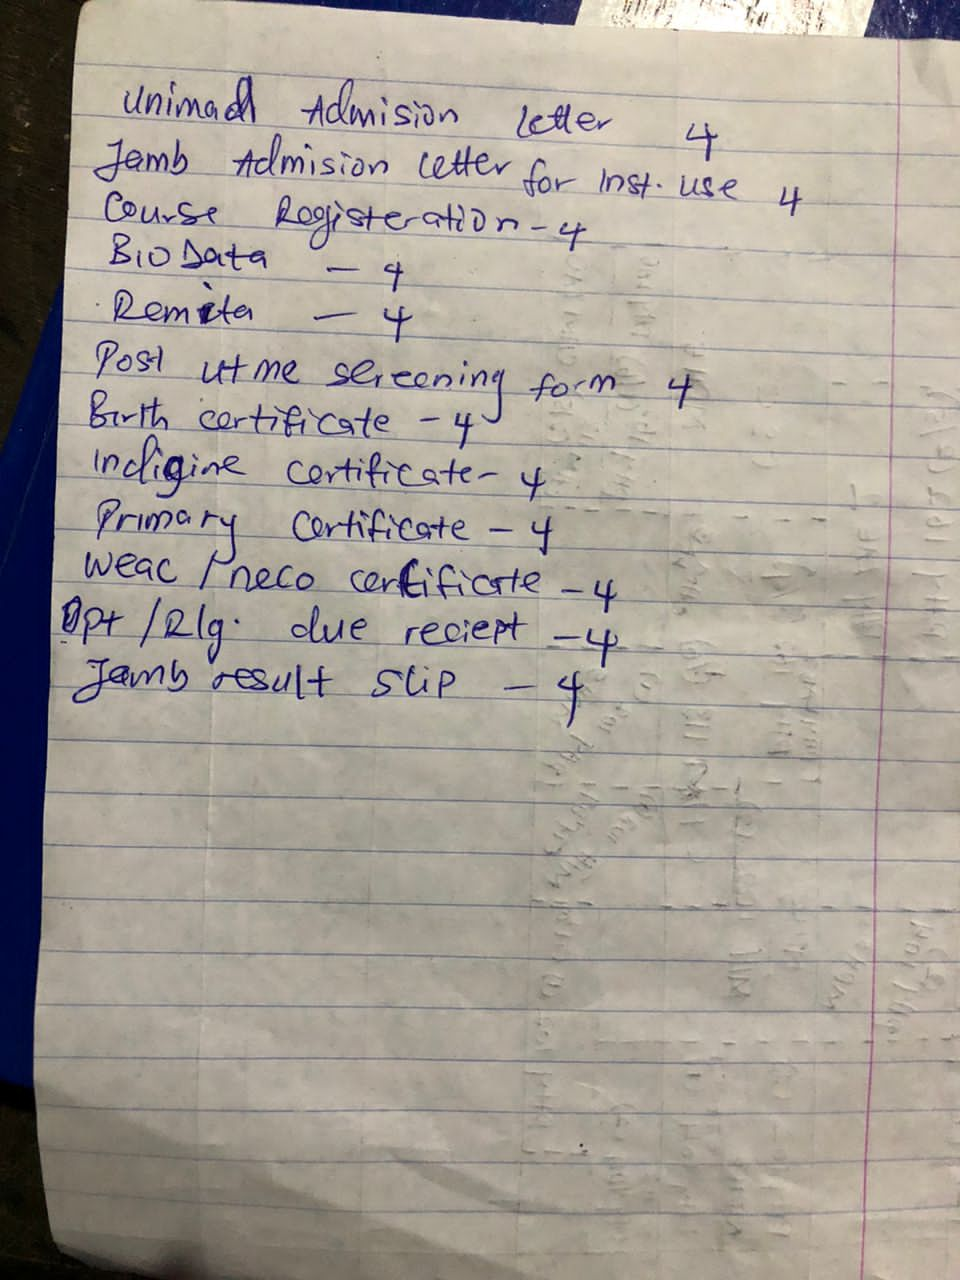 Unimaid Admision letter 4
Jamb Admision letter for Inst. use 4
Course Registeration - 4
Bio Data - 4
Remita - 4
Post utme screening form 4
Birth certificate - 4
Indigine certificate - 4
Primary certificate - 4
Weac / neco certificate - 4
Dpt / Rlg. due reciept - 4
Jamb result slip - 4